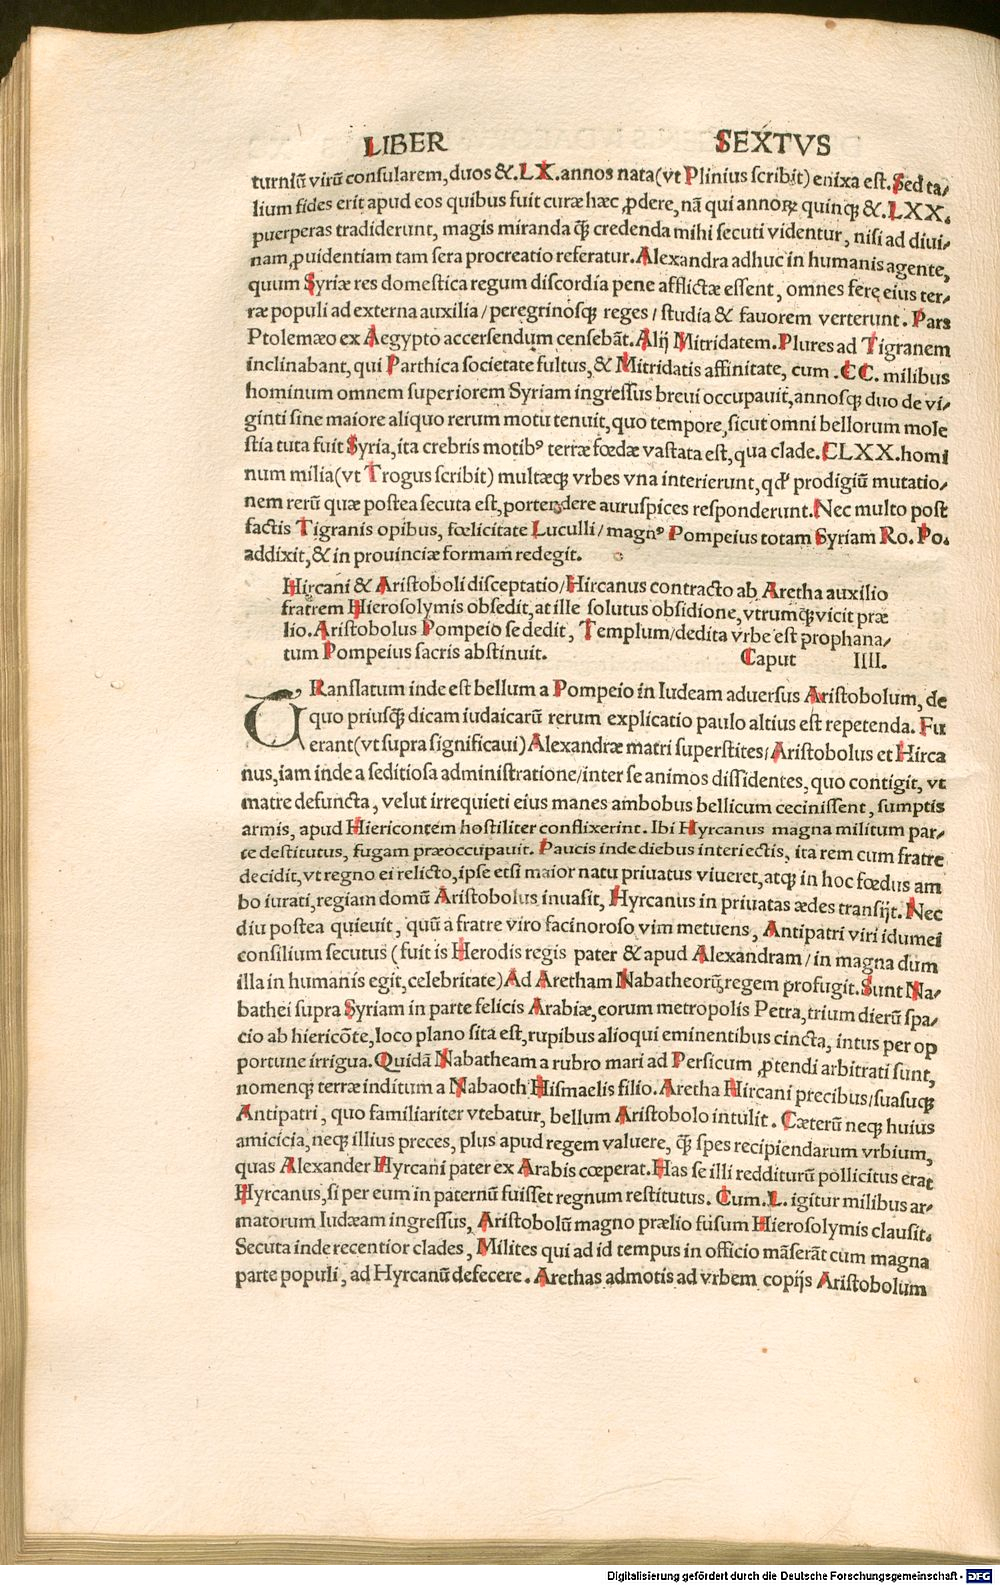 LIBER SEXTVS
turniū virū consularem, duos &. LX. annos nata (vt Plinius scribit) enixa est. Sed ta/
lium fides erit apud eos quibus fuit curæ hæc ꝓdere, nā qui annoꝝ quinqꝫ &. LXX.
puerperas tradiderunt, magis miranda q̄ꝫ credenda mihi secuti videntur, nisi ad diui/
nam ꝓuidentiam tam sera procreatio referatur. Alexandra adhuc in humanis agente,
quum Syriæ res domestica regum discordia pene afflictæ essent, omnes ferę eius ter/
ræ populi ad externa auxilia / peregrinosqꝫ reges / studia & fauorem verterunt. Pars
Ptolemæo ex Aegypto accersendum censebāt. Alij Mitridatem. Plures ad Tigranem
inclinabant, qui Parthica societate fultus, & Mitridatis affinitate, cum .CC. milibus
hominum omnem superiorem Syriam ingressus breui occupauit, annosqꝫ duo de vi/
ginti sine maiore aliquo rerum motu tenuit, quo tempore, sicut omni bellorum mole
stia tuta fuit Syria, ita crebris motibꝰ terræ fœdæ vastata est, qua clade. CLXX. homi
num milia (vt Trogus scribit) multæqꝫ vrbes vna interierunt, qđ prodigiū mutatio/
nem rerū quæ postea secuta est, portendere auruspices responderunt. Nec multo post
factis Tigranis opibus, fœlicitate Luculli / magnꝰ Pompeius totam Syriam Ro. Po.
addixit, & in prouinciæ formam redegit.
Hircani & Aristoboli disceptatio / Hircanus contracto ab Aretha auxilio
fratrem Hierosolymis obsedit, at ille solutus obsidione, vtrumqꝫ vicit præ
lio. Aristobolus Pompeio se dedit, Templum / dedita vrbe est prophana/
tum Pompeius sacris abstinuit. Caput IIII.
TRanslatum inde est bellum a Pompeio in Iudeam aduersus Aristobolum, de
quo priusq̄ꝫ dicam iudaicarū rerum explicatio paulo altius est repetenda. Fu
erant (vt supra significaui) Alexandræ matri superstites / Aristobolus et Hirca
nus, iam inde a seditiosa administratione / inter se animos dissidentes, quo contigit, vt
matre defuncta, velut irrequieti eius manes ambobus bellicum cecinissent, sumptis
armis, apud Hiericontem hostiliter conflixerint. Ibi Hyrcanus magna militum par/
te destitutus, fugam præoccupauit. Paucis inde diebus interiectis, ita rem cum fratre
decidit, vt regno ei relicto, ipse etsi maior natu priuatus viueret, atqꝫ in hoc fœdus am
bo iurati, regiam domū Aristobolus inuasit, Hyrcanus in priuatas ædes transijt. Nec
diu postea quieuit, quū a fratre viro facinoroso vim metuens, Antipatri viri idumei
consilium secutus (fuit is Herodis regis pater & apud Alexandram / in magna dum
illa in humanis egit, celebritate) Ad Aretham Nabatheoꝝ regem profugit. Sunt Na/
bathei supra Syriam in parte felicis Arabiæ, eorum metropolis Petra, trium dierū spa/
cio ab hiericōte, loco plano sita est, rupibus alioqui eminentibus cincta, intus per op
portune irrigua. Quidā Nabatheam a rubro mari ad Persicum ꝓtendi arbitrati sunt,
nomenqꝫ terræ inditum a Nabaoth Hismaelis filio. Aretha Hircani precibus / suasuqꝫ
Antipatri, quo familiariter vtebatur, bellum Aristobolo intulit. Cæterū neqꝫ huius
amicicia, neqꝫ illius preces, plus apud regem valuere, q̄ꝫ spes recipiendarum vrbium,
quas Alexander Hyrcani pater ex Arabis cœperat. Has se illi redditurū pollicitus erat
Hyrcanus, si per eum in paternū fuisset regnum restitutus. Cum. L. igitur milibus ar/
matorum Iudæam ingressus, Aristobolū magno prælio fusum Hierosolymis clausit.
Secuta inde recentior clades, Milites qui ad id tempus in officio māserāt cum magna
parte populi, ad Hyrcanū defecere. Arethas admotis ad vrbem copijs Aristobolum
Digitalisierung gefördert durch die Deutsche Forschungsgemeinschaft - DFG